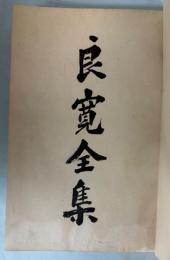 良寛全集